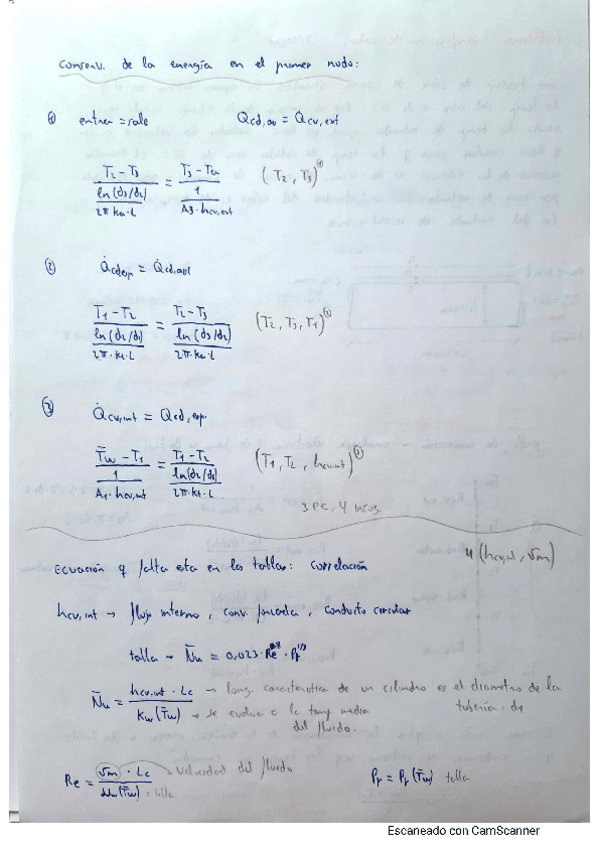 Conserv. de la energía en el primer nodo:
① entra = sale Q̇cd,aisl = Q̇cv,ext
(T2 - T3) / (ln(d3/d2) / 2π·ka·L) = (T3 - Ta) / (1 / A3·hcv,ext) (T2, T3)
② Q̇cd,esp = Q̇cd,aisl
(T1 - T2) / (ln(d2/d1) / 2π·kt·L) = (T2 - T3) / (ln(d3/d2) / 2π·ka·L) (T2, T3, T1)
③ Q̇cv,int = Q̇cd,esp
(T̄w - T1) / (1 / A1·hcv,int) = (T1 - T2) / (ln(d2/d1) / 2π·kt·L) (T1, T2, hcv,int)
3 ec, 4 incog.
4 (hcv,int, vm)
Ecuación q falta esta en las tablas: correlación
hcv,int → flujo interno, conv. forzada, conducto circular
talla → N̄u = 0,023·Re^0,8·Pr^1/3
N̄u = hcv,int · Lc / kw(T̄w) → long. caracteristica de un cilindro es el diametro de la
tubería: d1
→ se evalua a la temp media
del fluido.
Re = vm · Lc / νw(T̄w) → velocidad del fluido
: talla
Pr = Pr(T̄w) talla
Escaneado con CamScanner